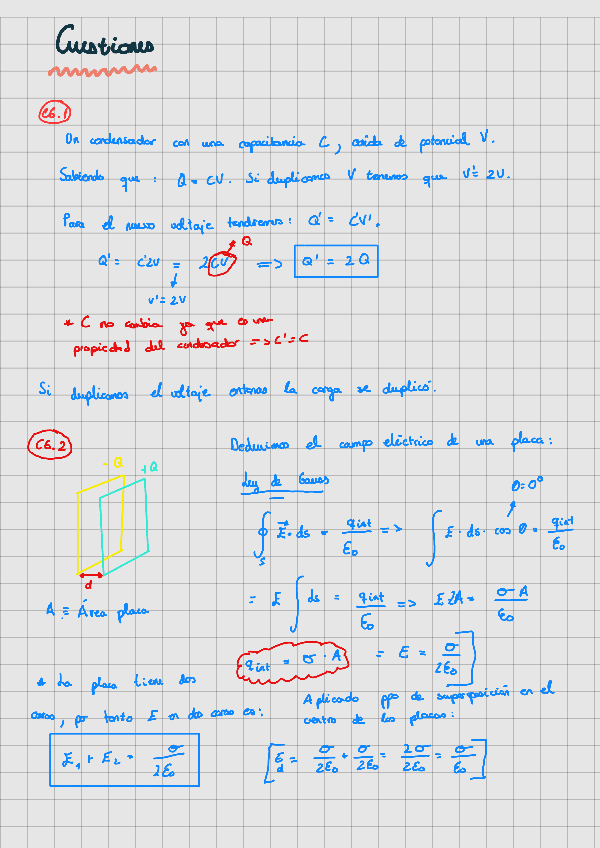 Cuestiones
C6.1
Un condensador con una capacitancia C, caída de potencial V.
Sabiendo que : Q = CV. Si duplicamos V tenemos que V' = 2V.
Para el nuevo voltaje tendremos: Q' = C'V'.
Q
Q' = C'2V = 2CV => Q' = 2Q
V' = 2V
* C no cambia ya que es una
propiedad del condensador => C' = C
Si duplicamos el voltaje entonces la carga se duplicó.
C6.2
Deducimos el campo eléctrico de una placa:
- Q
+ Q
Ley de Gauss
θ = 0°
∮s E⃗ · ds = qint/ε0 => ∫ E · ds · cos θ = qint/ε0
d
= E ∫ ds = qint/ε0 => E 2A = σ A/ε0
A ≡ Área placa
qint = σ · A
= E = σ/2ε0
* La placa tiene dos
caras, por tanto E en dos caras es:
E1 + E2 = σ/2ε0
Aplicado ppo de superposición en el
centro de las placas:
Ed = σ/2ε0 + σ/2ε0 = 2σ/2ε0 = σ/ε0